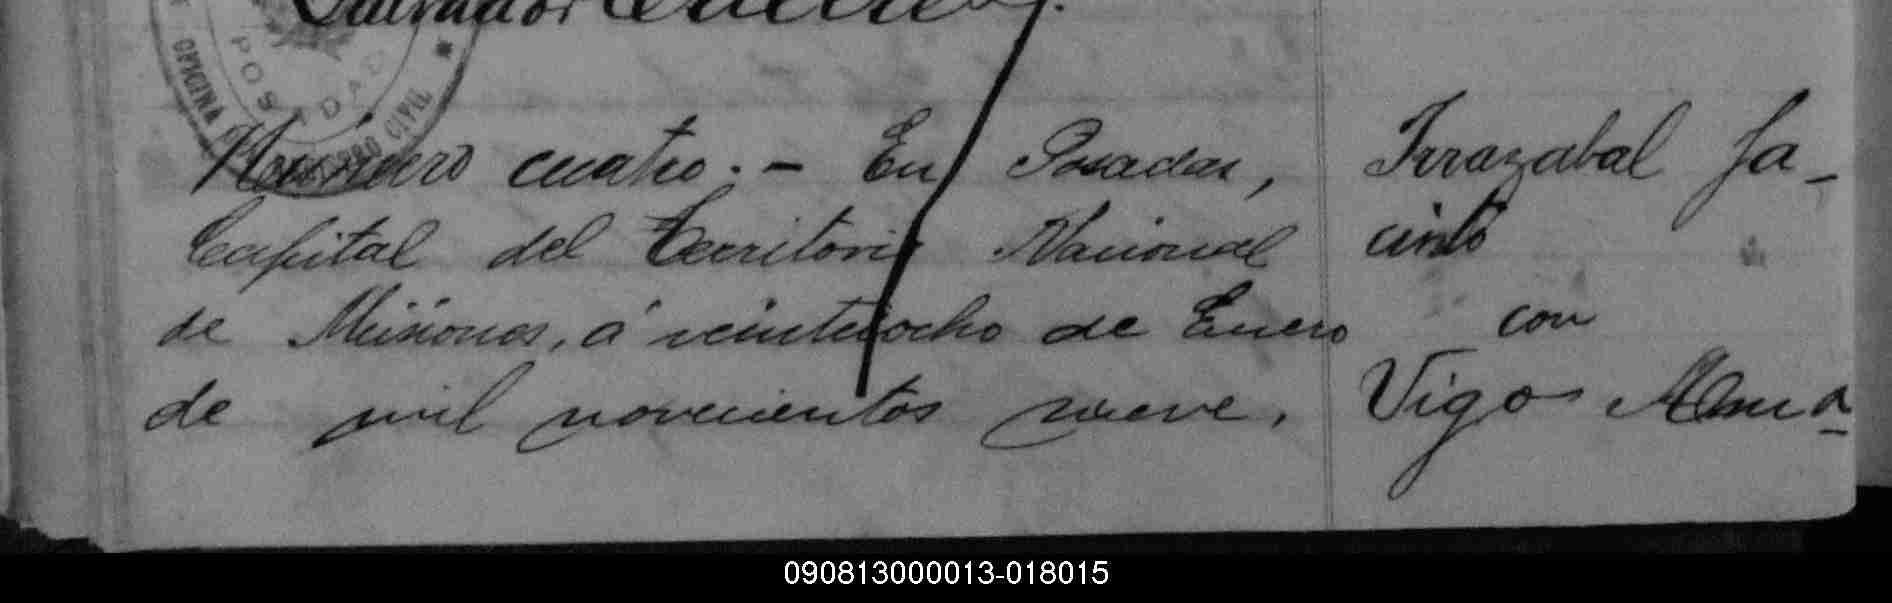 Salvador
OFICINA
REGISTRO CIVIL
POSADAS
Número cuatro. - En Posadas,
Capital del Territorio Nacional
de Misiones, á veinteiocho de Enero
de mil novecientos nueve,
Irrazabal Ja-
cinto
con
Vigo
090813000013-018015